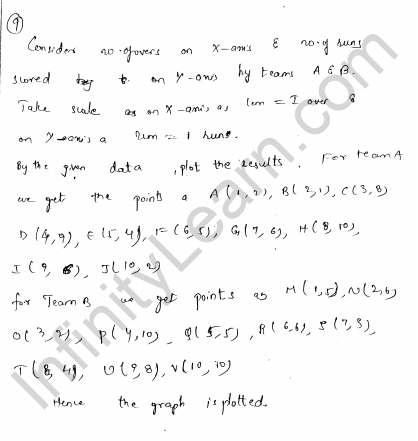 9
Consider no. of overs on X-axis & no. of runs
scored on Y-axis by teams A & B.
Take scale as on X-axis as 1cm = 1 over &
on Y-axis a 1cm = 1 run.
By the given data, plot the results. For team A
we get the points a A(1,2), B(2,1), C(3,8)
D(4,9), E(5,4), F(6,5), G(7,6), H(8,10),
I(9,6), J(10,2)
for Team B we get points as M(1,5), N(2,6)
O(3,2), P(4,10), Q(5,5), R(6,6), S(7,3),
T(8,4), U(9,8), V(10,10)
Hence the graph is plotted.
InfinityLearn.com